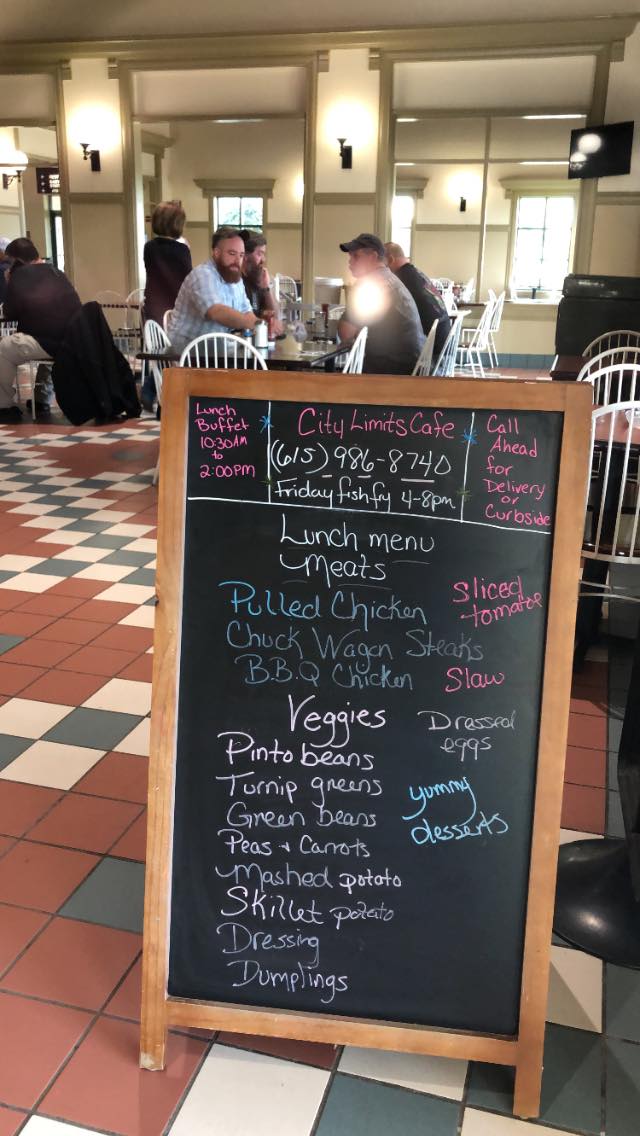 Lunch
Buffet
10:30AM
to
2:00pm
City Limits Cafe
(615) 986-8740
Friday fish fy 4-8pm
Call
Ahead
for
Delivery
or
Curbside
Lunch menu
Meats
Pulled Chicken
Chuck Wagon Steaks
B.B.Q Chicken
Sliced
tomatoe
Slaw
Veggies
Dressed
eggs
Pinto beans
Turnip greens
Green beans
Peas + Carrots
Mashed potato
Skillet potato
Dressing
Dumplings
yummy
desserts